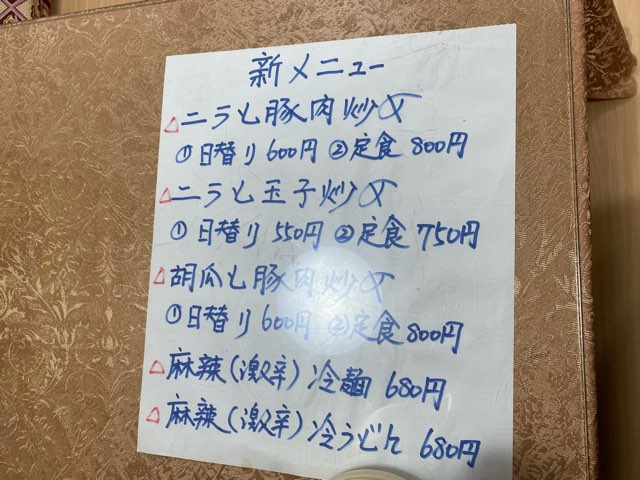 新メニュー
△ニラと豚肉炒め
①日替り600円 ②定食800円
△ニラと玉子炒め
①日替り550円 ②定食750円
△胡瓜と豚肉炒め
①日替り600円 ②定食800円
△麻辣(激辛)冷麺 680円
△麻辣(激辛)冷うどん 680円